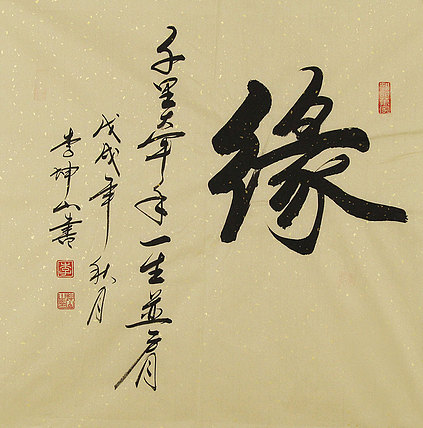 缘
千里牵手一生並肩
戊戌年秋月
李坤山書